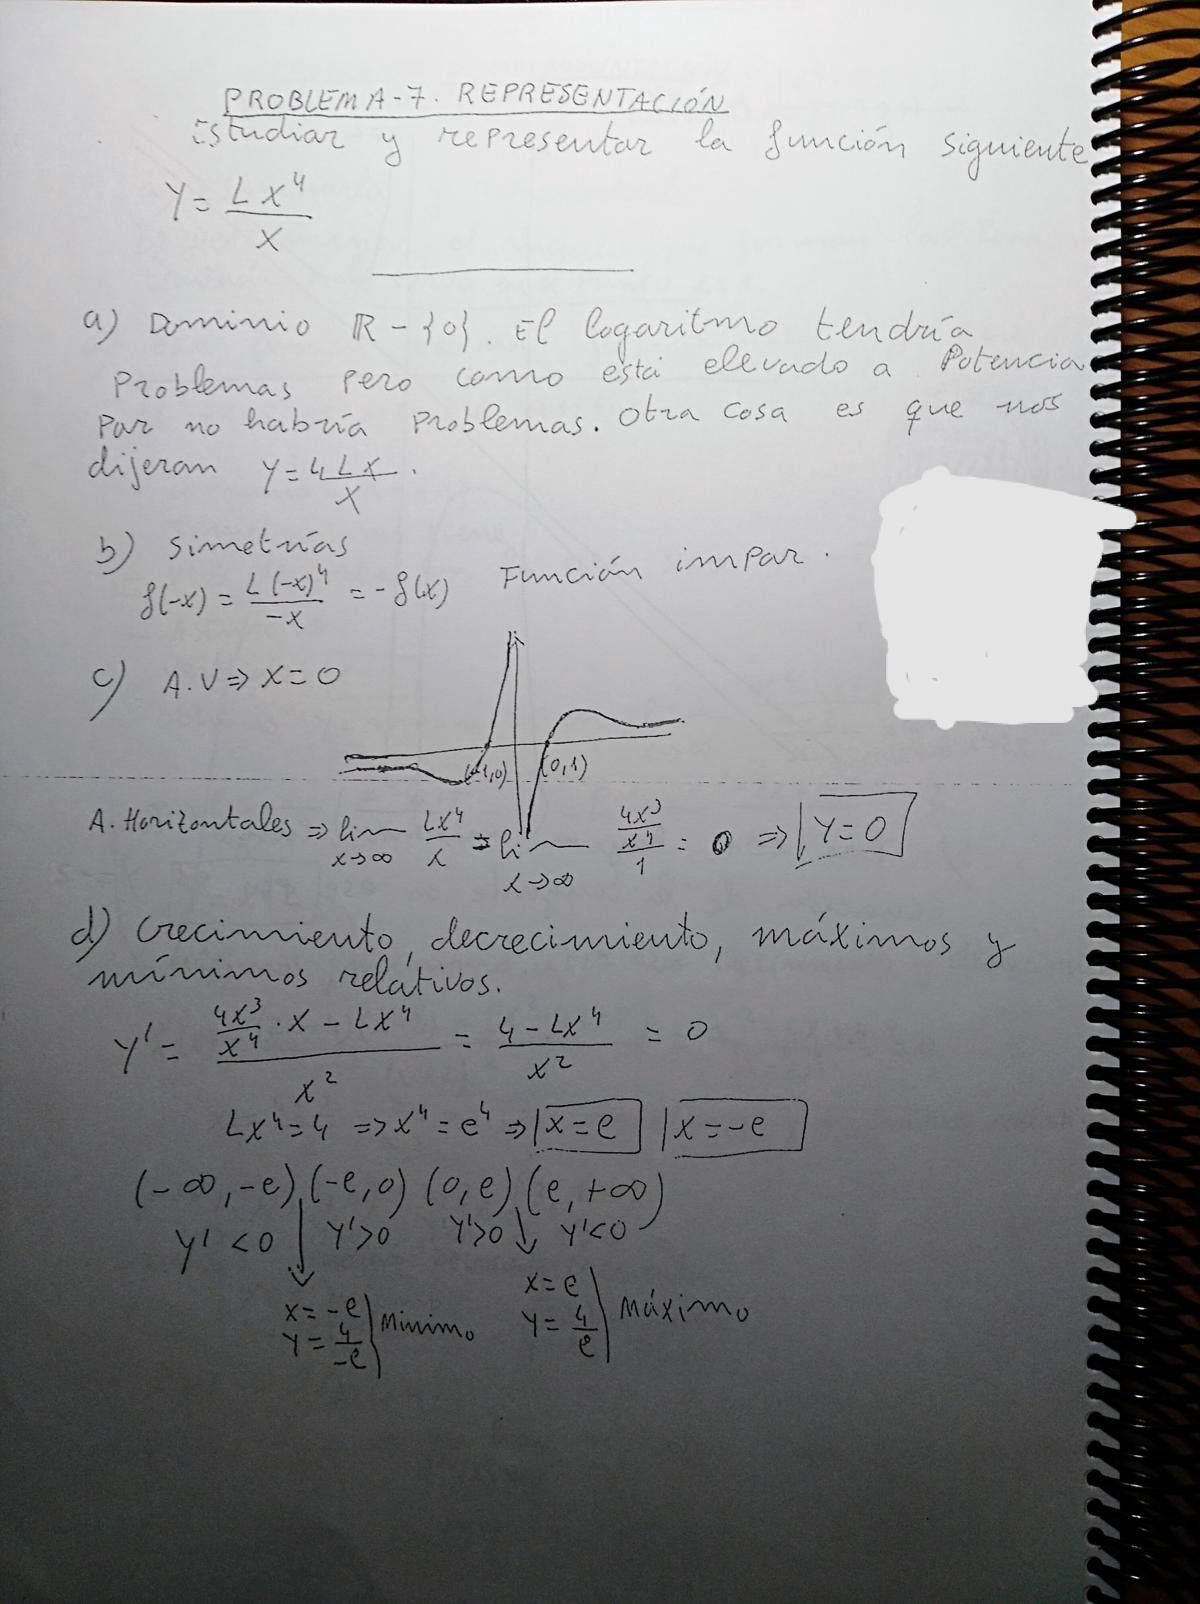 PROBLEMA-7. REPRESENTACIÓN
Estudiar y representar la función siguiente
Y = LX⁴/X
a) Dominio ℝ - {0}. El logaritmo tendría
problemas pero como está elevado a potencia
par no habría problemas. Otra cosa es que nos
dijeran Y = 4LX/X.
b) Simetrías
f(-x) = L(-x)⁴/-x = -f(x) Función impar.
c) A.V ⇒ X = 0
(-1,0) (0,1)
A. Horizontales ⇒ lim x→∞ LX⁴/X = lim x→∞ (4X³/X⁴)/1 = 0 ⇒ Y = 0
d) Crecimiento, decrecimiento, máximos y
mínimos relativos.
Y' = (4X³/X⁴ · X - LX⁴)/X² = (4 - LX⁴)/X² = 0
LX⁴ = 4 ⇒ X⁴ = e⁴ ⇒ X = e X = -e
(-∞, -e) (-e, 0) (0, e) (e, +∞)
Y' < 0 Y' > 0 Y' > 0 Y' < 0
X = -e
Y = 4/-e Mínimo
X = e
Y = 4/e Máximo